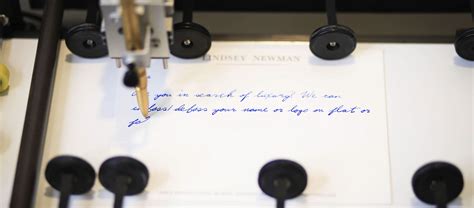 LINDSEY NEWMAN
you in search of luxury? We can
emboss/deboss your name or logo on flat or